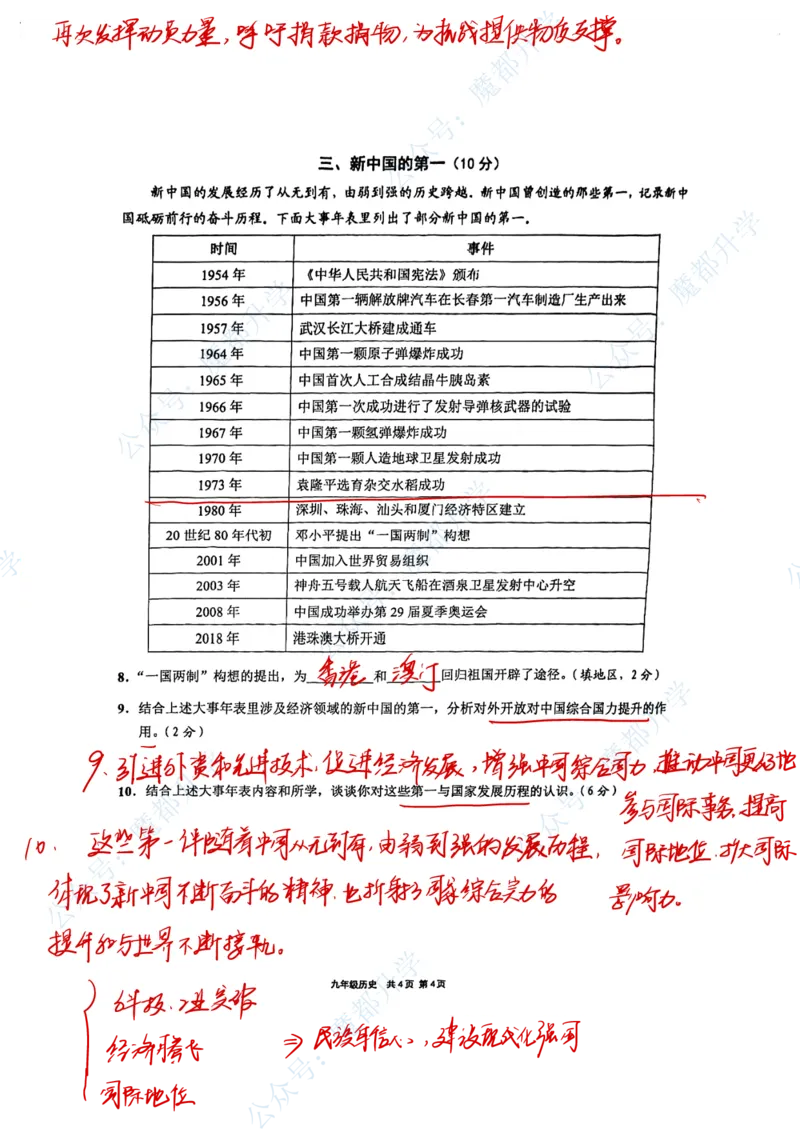 再次发挥动员力量，呼吁捐款捐物，为抗战提供物质支撑。
三、新中国的第一（10分）
新中国的发展经历了从无到有，由弱到强的历史跨越。新中国曾创造的那些第一，记录新中
国砥砺前行的奋斗历程。下面大事年表里列出了部分新中国的第一。
时间 事件
1954年 《中华人民共和国宪法》颁布
1956年 中国第一辆解放牌汽车在长春第一汽车制造厂生产出来
1957年 武汉长江大桥建成通车
1964年 中国第一颗原子弹爆炸成功
1965年 中国首次人工合成结晶牛胰岛素
1966年 中国第一次成功进行了发射导弹核武器的试验
1967年 中国第一颗氢弹爆炸成功
1970年 中国第一颗人造地球卫星发射成功
1973年 袁隆平选育杂交水稻成功
1980年 深圳、珠海、汕头和厦门经济特区建立
20世纪80年代初 邓小平提出“一国两制”构想
2001年 中国加入世界贸易组织
2003年 神舟五号载人航天飞船在酒泉卫星发射中心升空
2008年 中国成功举办第29届夏季奥运会
2018年 港珠澳大桥开通
8.“一国两制”构想的提出，为 香港 和 澳门 回归祖国开辟了途径。（填地区，2分）
9. 结合上述大事年表里涉及经济领域的新中国的第一，分析对外开放对中国综合国力提升的作
用。（2分）
9. 引进外资和先进技术，促进经济发展，增强中国综合国力，推动中国更好地
参与国际事务，提高
国际地位，扩大国际
影响力。
10. 结合上述大事年表内容和所学，谈谈你对这些第一与国家发展历程的认识。（6分）
10. 这些第一伴随着中国从无到有，由弱到强的发展历程，
体现了新中国不断奋斗的精神，也折射了国家综合实力的
提升和与世界不断接轨。
九年级历史 共4页 第4页
经济腾飞
国际地位
⇒ 民族自信心，建设现代化强国
公众号：魔都升学